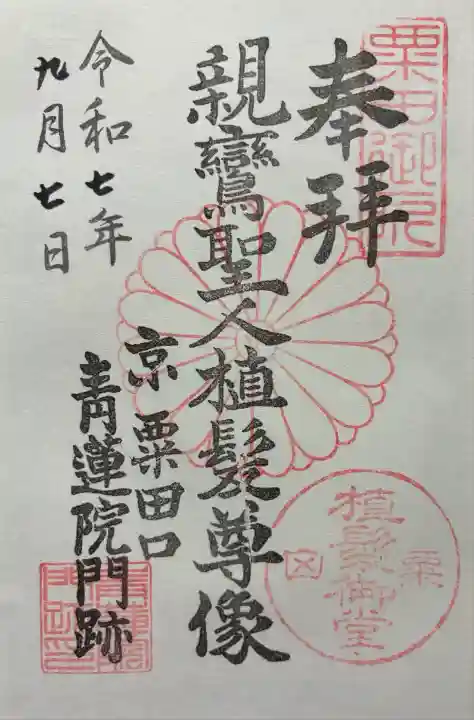 奉拝
親鸞聖人植髪尊像
京 粟田口
青蓮院門跡
令和七年
九月七日
粟田御所
植髪御堂
粟田
青蓮院門跡印